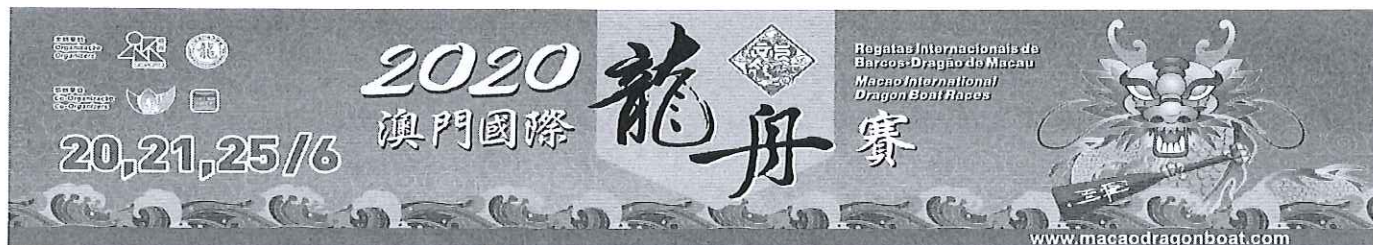 主辦單位
Organização
Organizers
協辦單位
Co-Organização
Co-Organizers
20,21,25/6
2020
澳門國際
龍舟
賽
Regatas Internacionais de
Barcos-Dragão de Macau
Macao International
Dragon Boat Races
www.macaodragonboat.com